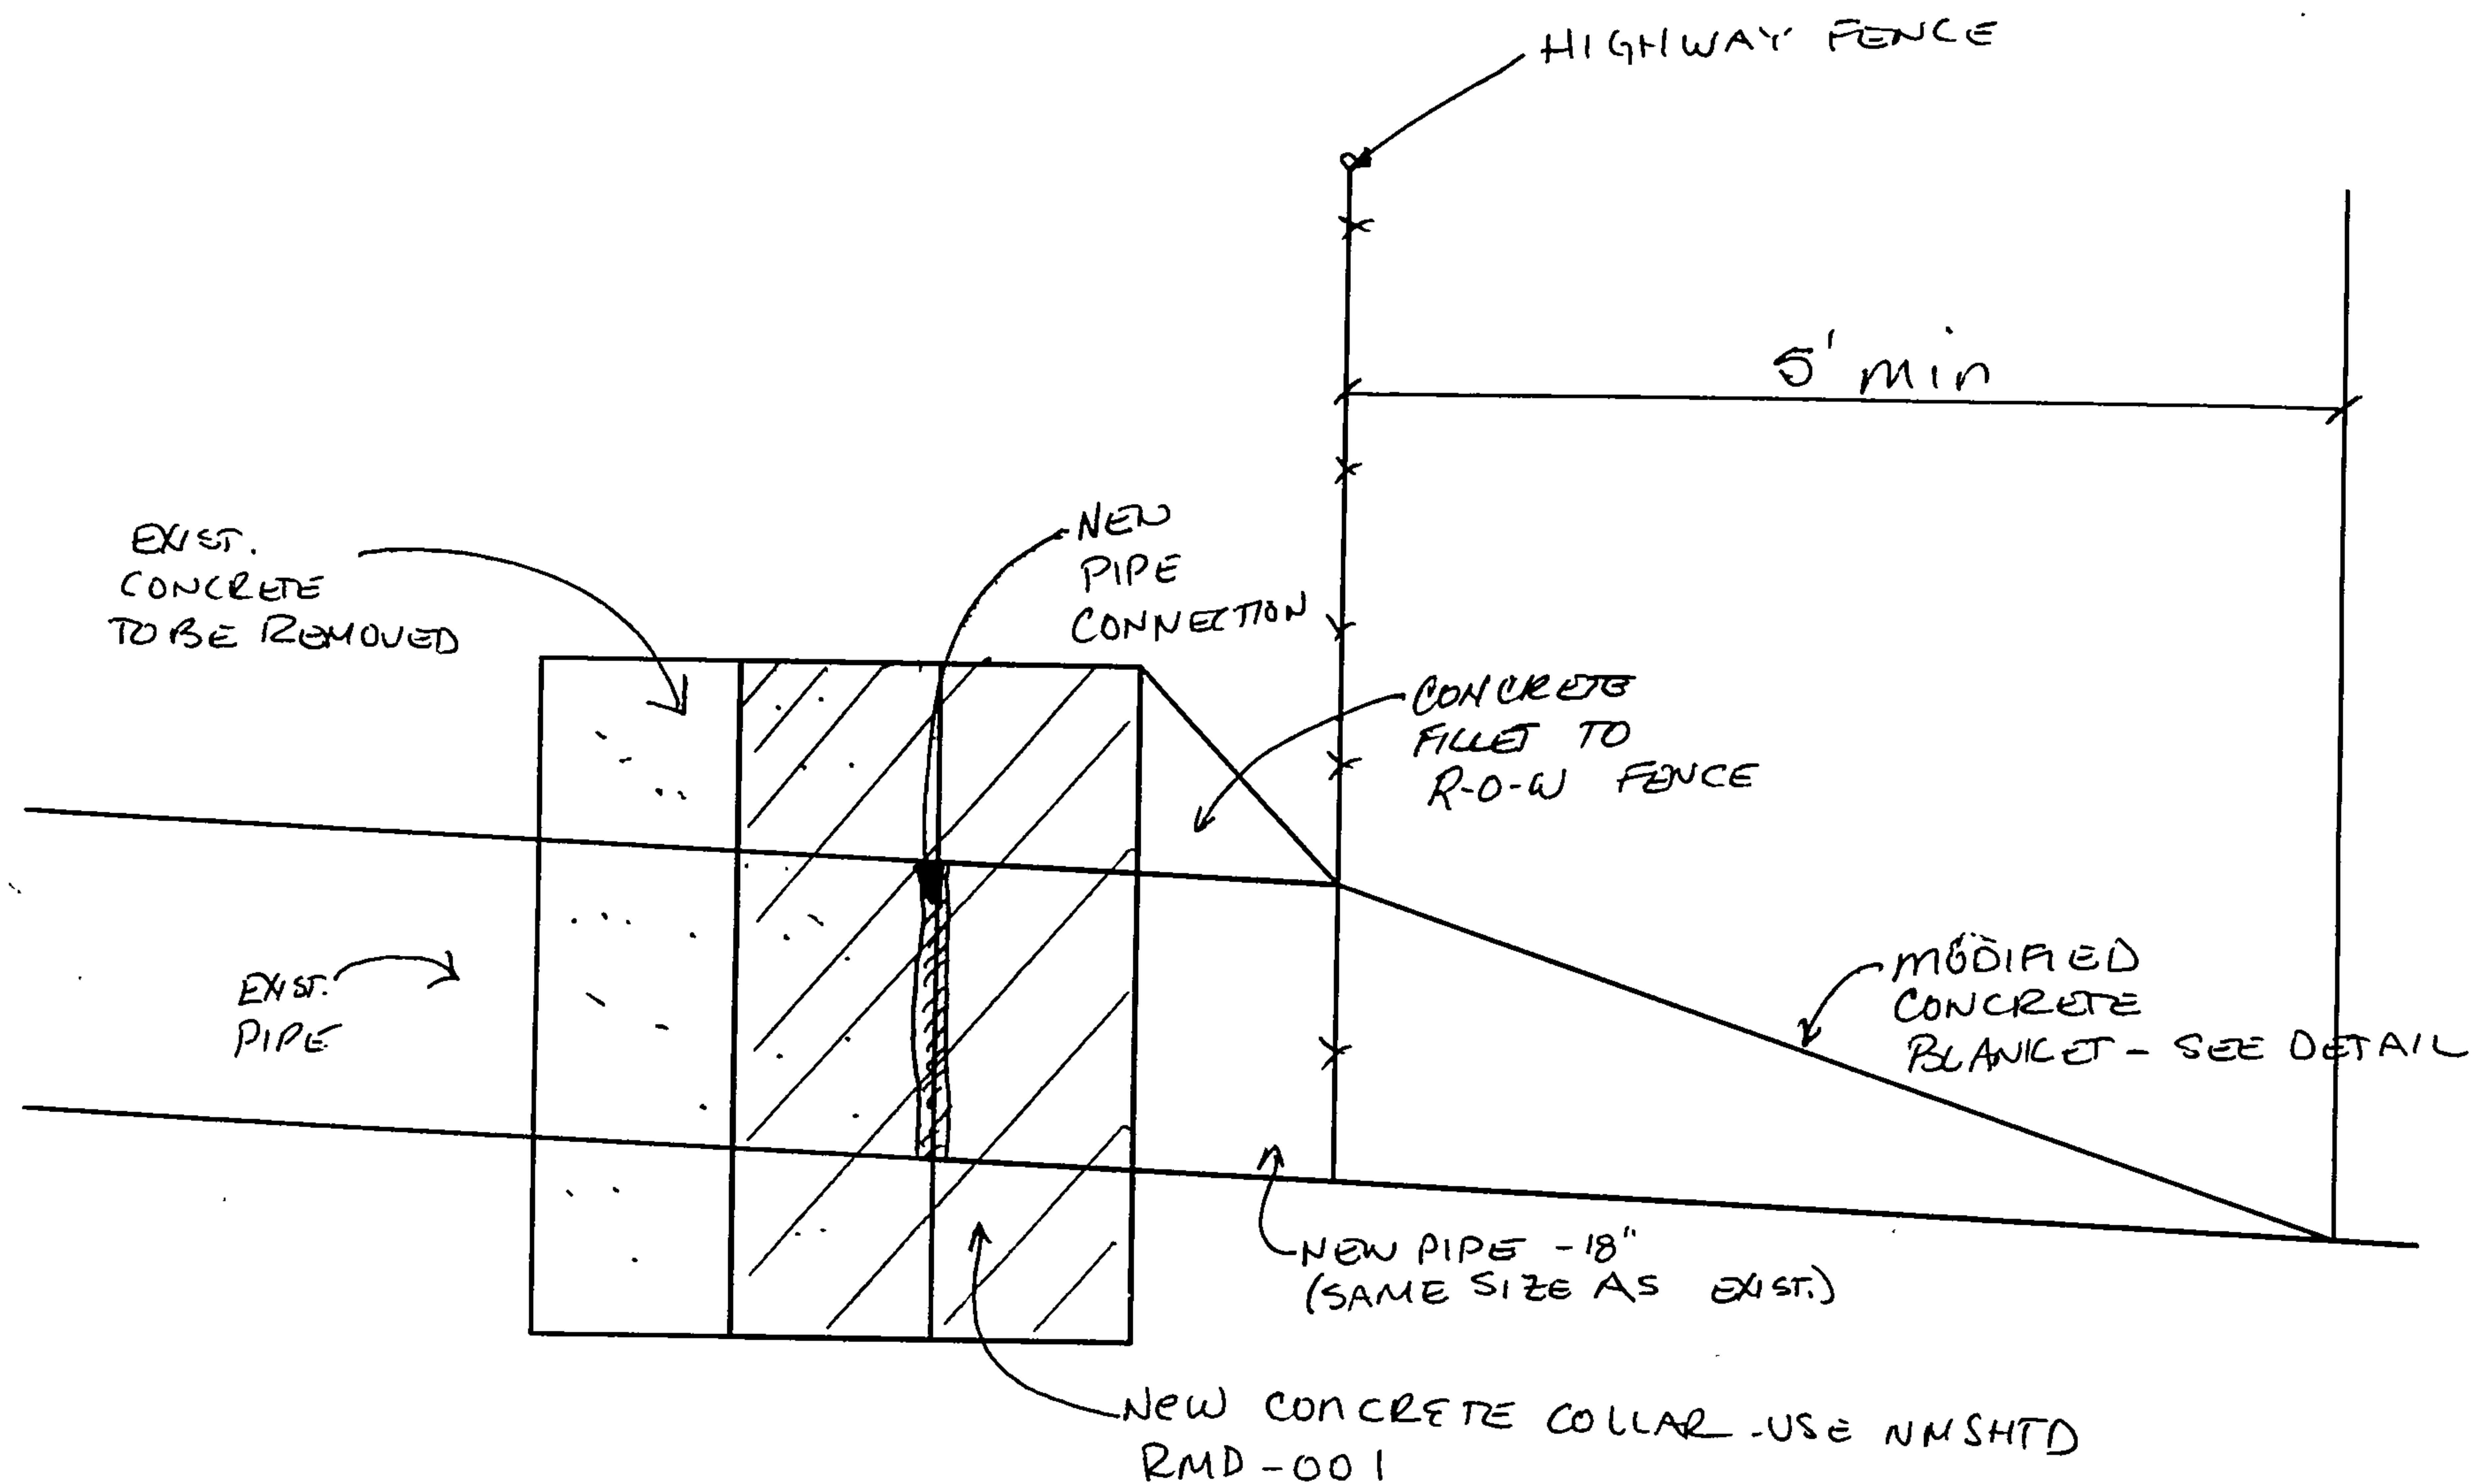 HIGHWAY FENCE
5' min
EXIST.
CONCRETE
TO BE REMOVED
NEW
PIPE
CONNECTION
CONCRETE
FILLET TO
R-O-W FENCE
EXIST.
PIPE
MODIFIED
CONCRETE
BLANKET - SEE DETAIL
NEW PIPE - 18"
(SAME SIZE AS EXIST.)
NEW CONCRETE COLLAR - USE NMSHTD
RMD - 001